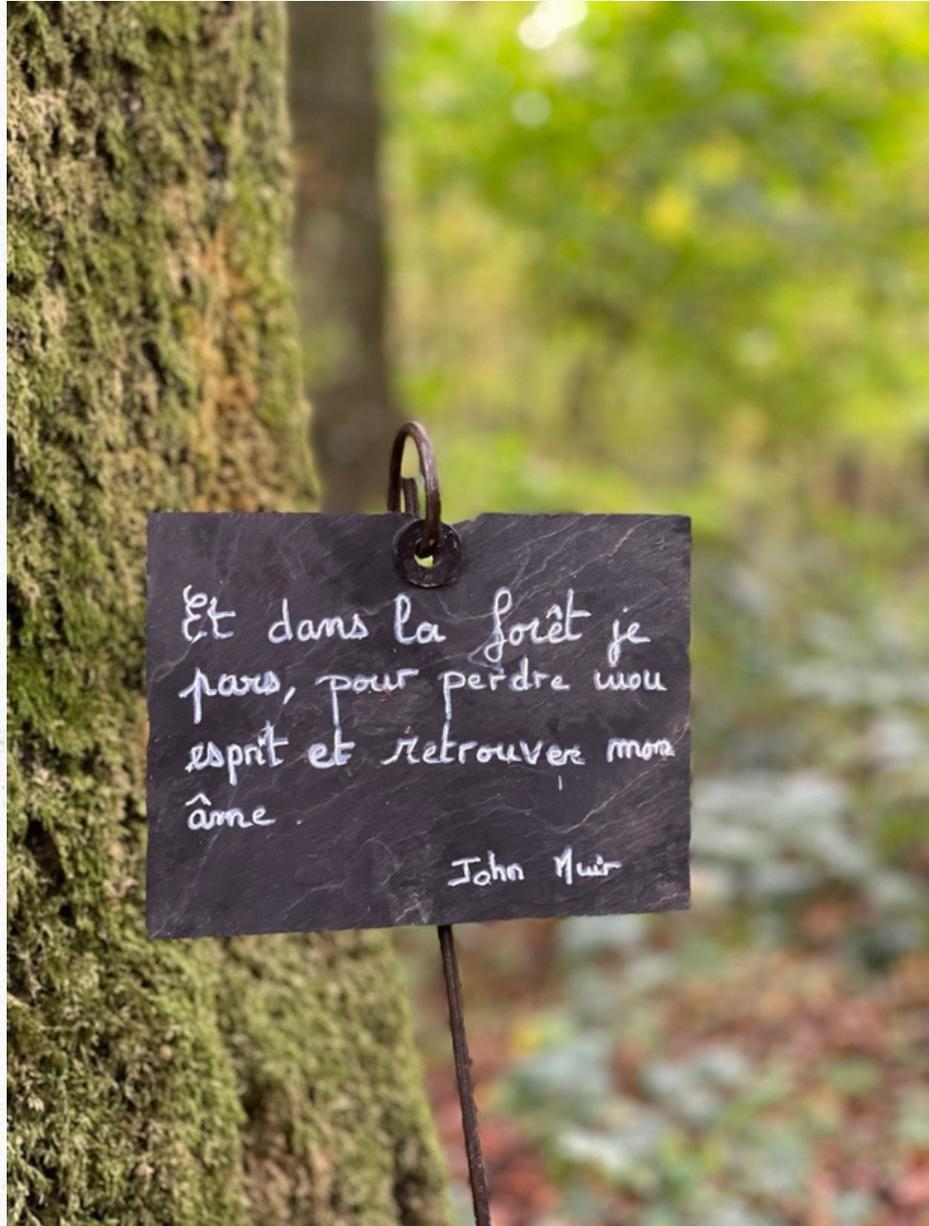 Et dans la forêt je
pars, pour perdre mon
esprit et retrouver mon
âme.
John Muir